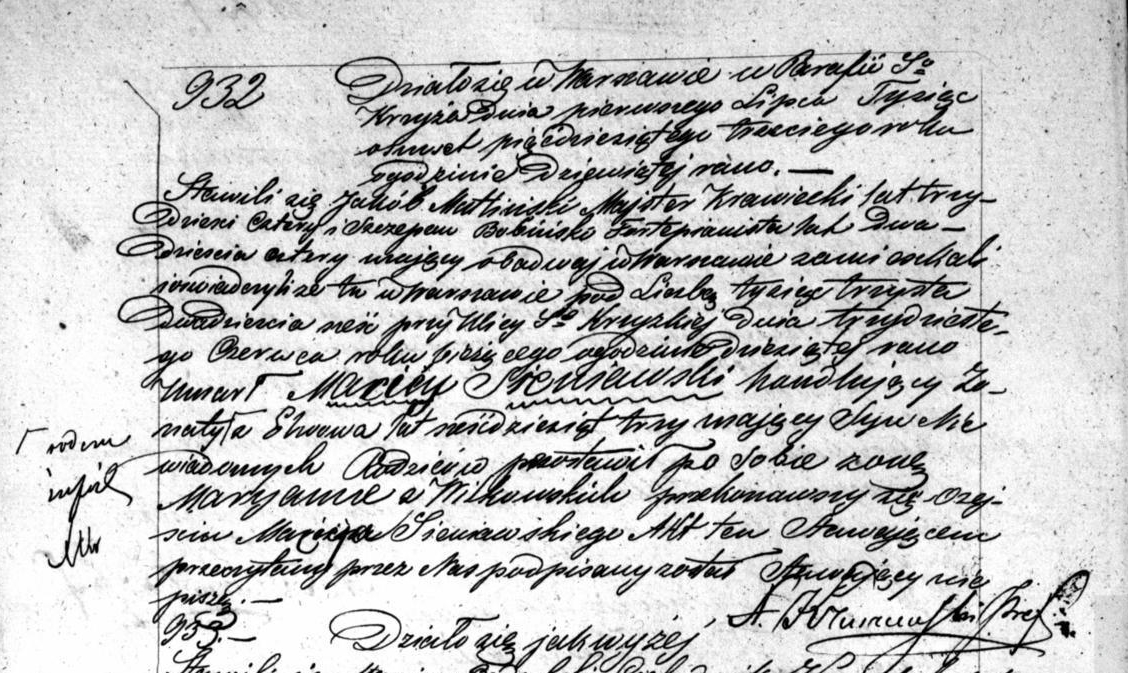 932 Działo się w Warszawie w Parafii So
Krzyża Dnia pierwszego Lipca Tysiąc
ośmset pięćdziesiątego trzeciego roku
o godzinie Dziewiątej rano. —
Stawili się Jakób Matliński Majster Krawiecki lat trzy-
dzieści cztery i Szczepan Babiński Fortepianista lat Dwa-
dzieścia cztery mający obadwaj w Warszawie zamieszkali
i oświadczyli że tu w Warszawie pod Liczbą tysiąc trzysta
Dwadzieścia sześć przy Ulicy So Krzyzkiej Dnia trzydzieste-
go Czerwca roku bieżącego o godzinie dziesiątej rano
Umarł Maciej Sieniawski handlujący Żo-
naty lat sześćdziesiąt trzy mający Syn Nie
wiadomych Rodziców pozostawił po Sobie żonę
Maryannę z Witkowskich przekonawszy się o zej-
ściu Macieja Sieniawskiego Akt ten Stawającym
przeczytany przez Nas podpisany został Stawający nie
piszą. —
rodem
933. — Działo się jak wyżej